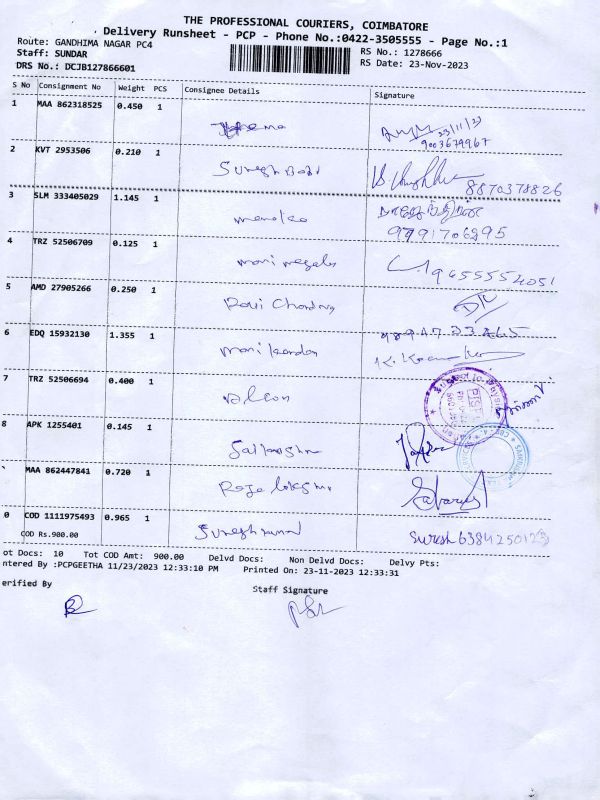 THE PROFESSIONAL COURIERS, COIMBATORE
Delivery Runsheet - PCP - Phone No.:0422-3505555 - Page No.:1
Route: GANDHIMA NAGAR PC4
RS No.: 1278666
Staff: SUNDAR
RS Date: 23-Nov-2023
DRS No.: DCJB127866601
S No Consignment No Weight PCS Consignee Details Signature
1 MAA 862318525 0.450 1
23/11/23
9003679967
2 KVT 2953506 0.210 1 Suresh Babu
8870378826
3 SLM 333405029 1.145 1 menaka
9791706295
4 TRZ 52506709 0.125 1
9655552051
5 AMD 27905266 0.250 1 Ravi Chandran
6 EDQ 15932130 1.355 1 manikandan
7 TRZ 52506694 0.400 1
8 APK 1255401 0.145 1
MAA 862447841 0.720 1
0 COD 1111975493 0.965 1 Sureshkumar
Suresh 6384250123
COD Rs.900.00
ot Docs: 10 Tot COD Amt: 900.00 Delvd Docs: Non Delvd Docs: Delvy Pts:
ntered By :PCPGEETHA 11/23/2023 12:33:10 PM Printed On: 23-11-2023 12:33:31
erified By
Staff Signature